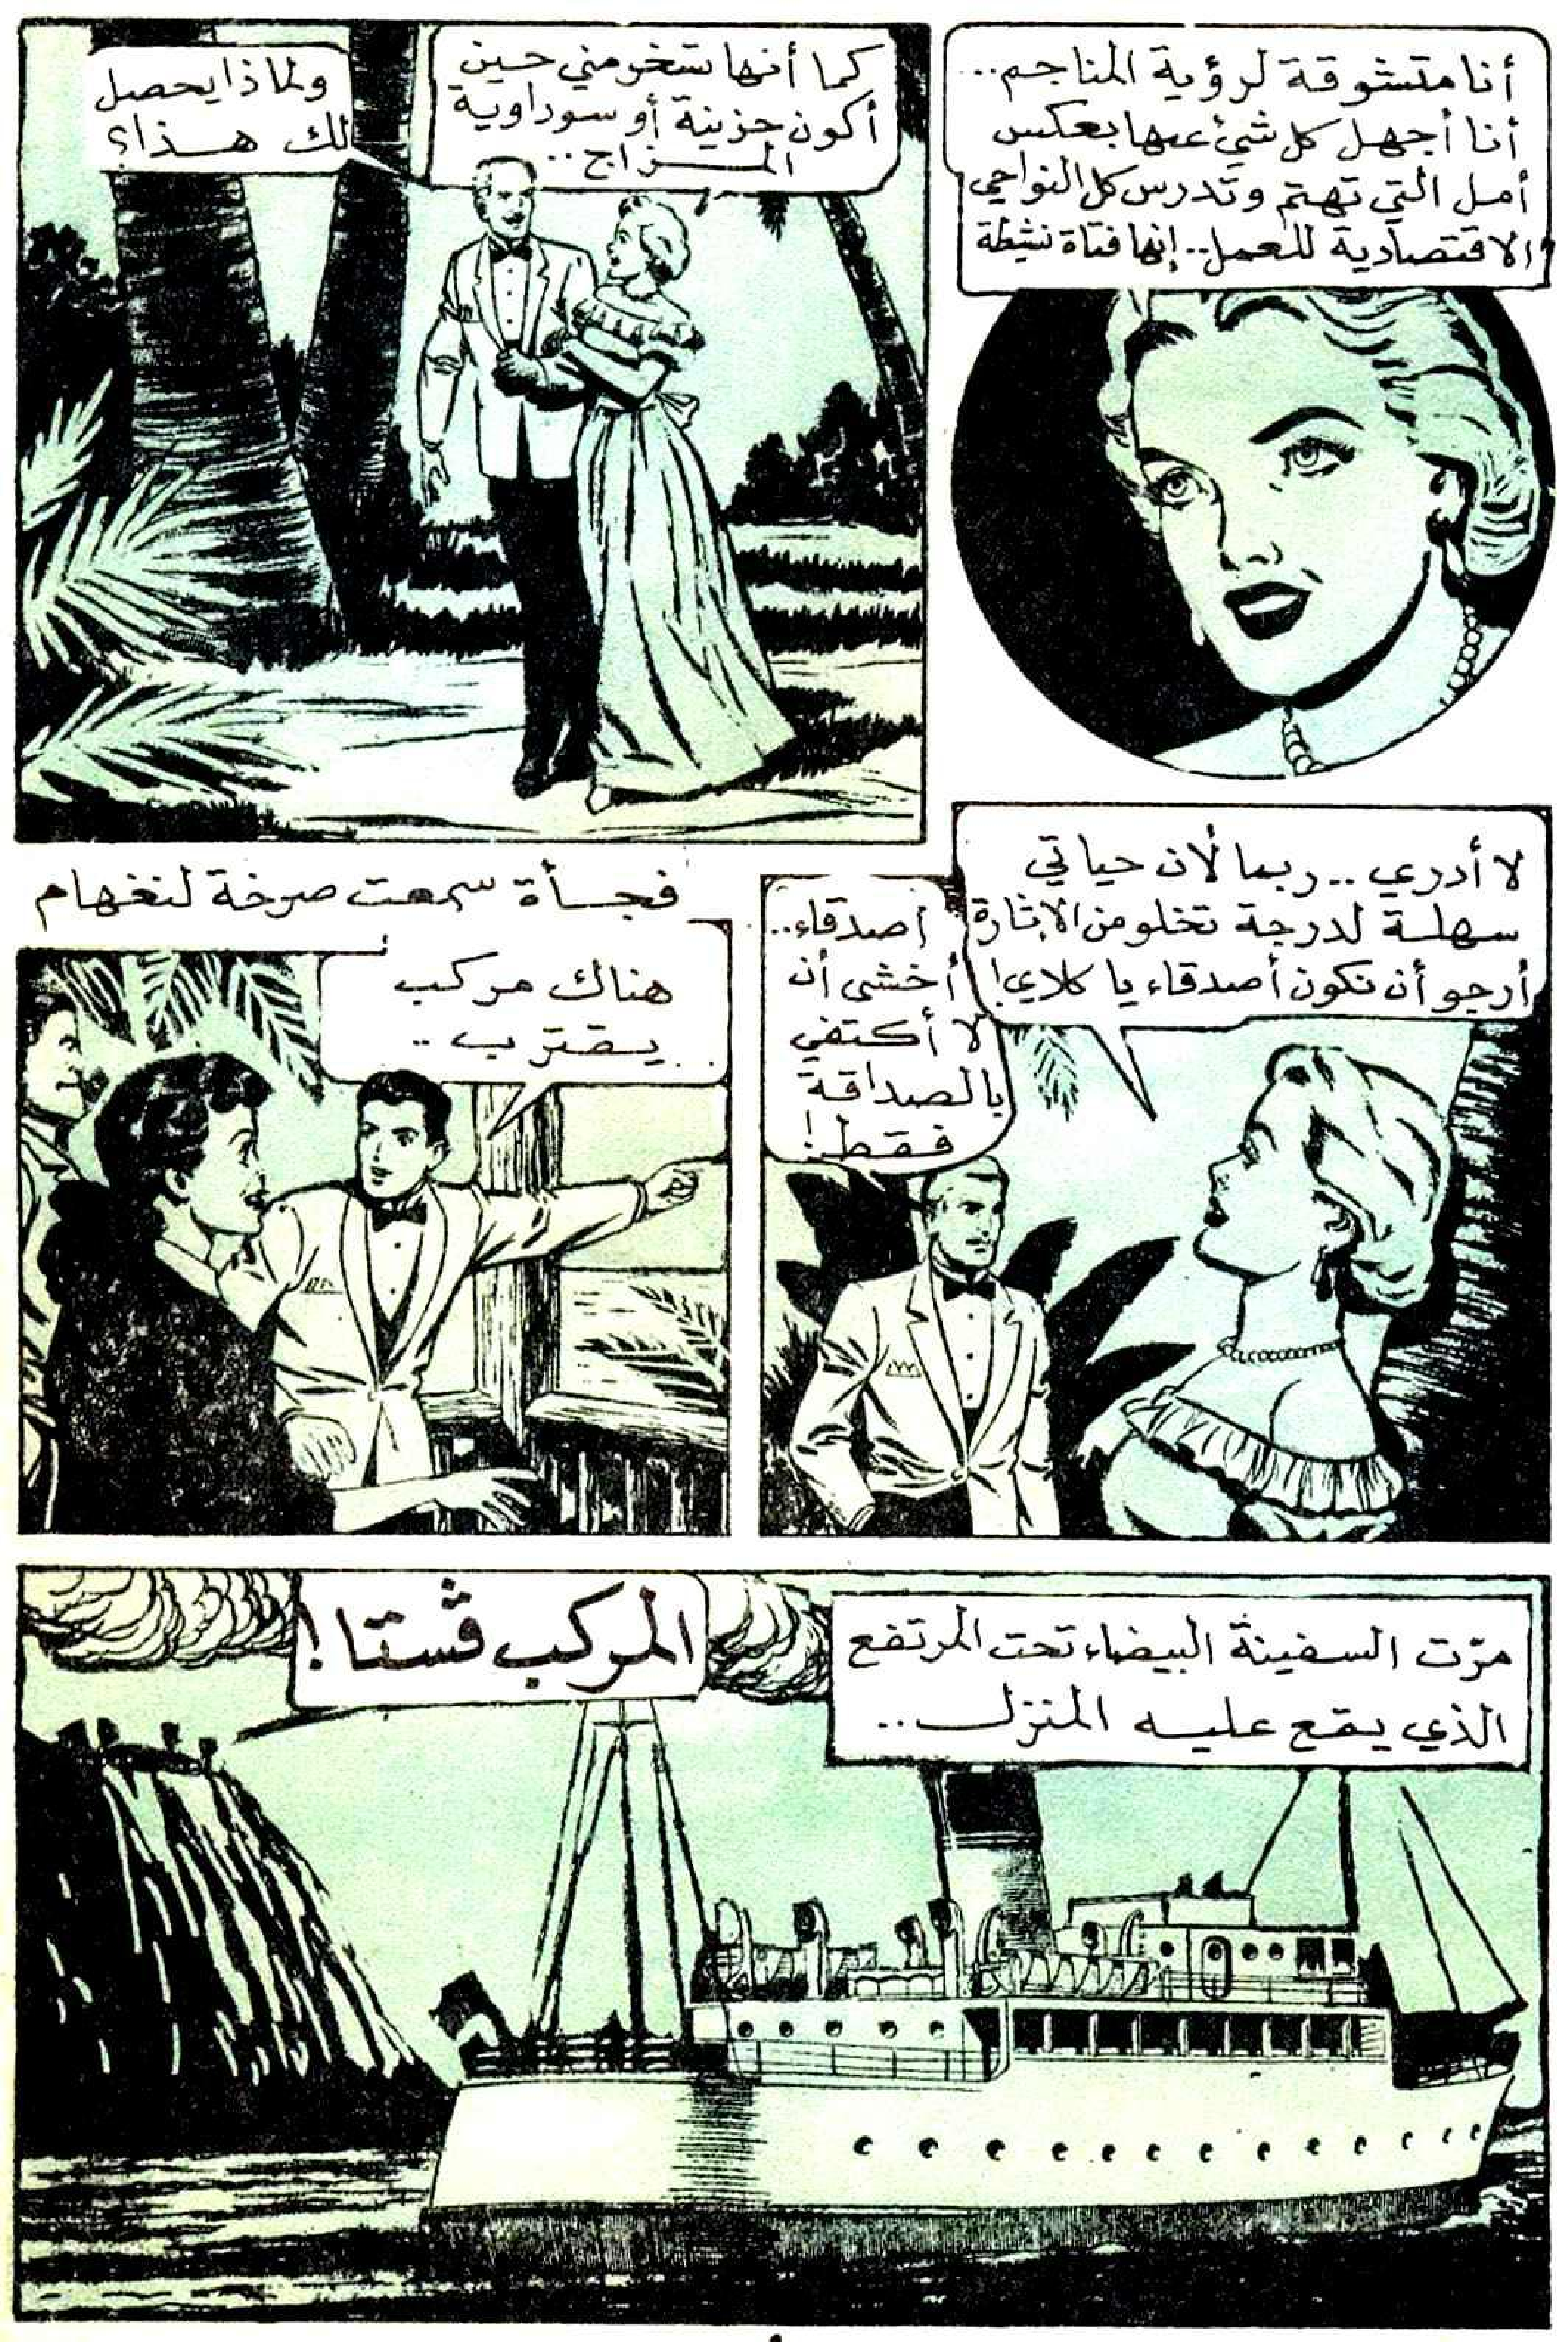 أنا متشوقة لرؤية المناجم..
أنا أجهل كل شيء عنها بعكس
أمل التي تهتم وتدرس كل النواحي
الاقتصادية للعمل.. إنها فتاة نشيطة
كما أنها تسخر مني حين
أكون حزينة أو سوداوية
المزاج..
ولماذا يحصل
لك هذا؟
لا أدري.. ربما لأن حياتي
سهلة لدرجة تخلو من الإثارة
أرجو أن نكون أصدقاء يا كلاي!
أصدقاء..
أخشى أن
لا أكتفي
بالصداقة
فقط!
فجأة سمعت صرخة لنغهام
هناك مركب
يقترب..
مرّت السفينة البيضاء تحت المرتفع
الذي يقع عليه المنزل..
المركب ڤستا!